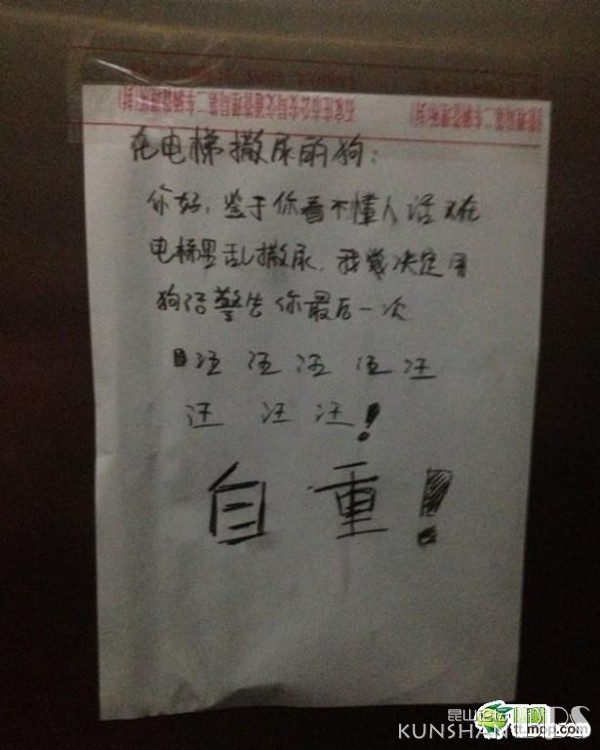 在电梯撒尿的狗：
你好，鉴于你看不懂人话又在
电梯里乱撒尿，我决定用
狗语警告你最后一次
汪 汪 汪 汪 汪
汪 汪 汪！
自重！
KUNSHAN
ttmop.com